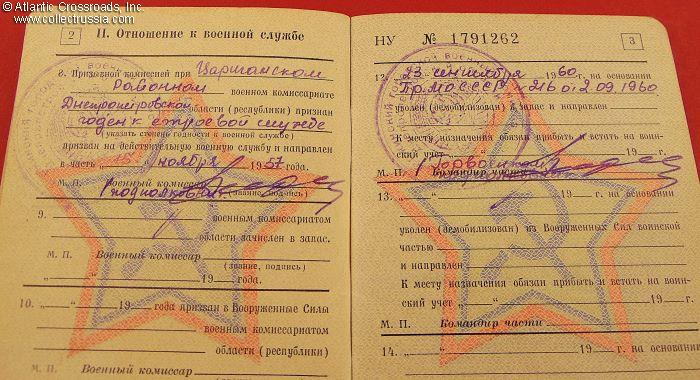 © Atlantic Crossroads, Inc.
www.collectrussia.com
2
II. Отношение к военной службе
8. Призывной комиссией при Царичанском
Районном военном комиссариате
Днепропетровской области (республики) признан
годен к строевой службе
(указать степень годности к военной службе)
призван на действительную военную службу и направлен
в часть „15“ ноября 1957 года.
М. П. Военный комиссар
подполковник (звание, подпись)
9. военным комиссариатом
области зачислен в запас.
М. П. Военный комиссар
(звание, подпись)
„ “ 19 года.
10. „ “ 19 года призван в Вооруженные Силы
военным комиссариатом
области (республики)
М. П. Военный комиссар
НУ № 1791262
3
12. „23“ сентября 1960 г. на основании
Пр. МО СССР № 216 от 2.09.1960
уволен (демобилизован) в запас и направлен
К месту назначения обязан прибыть и встать на воин-
ский учет
19 г.
М. П. Командир части
13. „ “ 19 г. на основании
уволен (демобилизован) из Вооруженных Сил воинской
частью
и направлен
К месту назначения обязан прибыть и встать на воин-
ский учет „ “ 19 г.
М. П. Командир части
14. „ “ 19 г. на основании